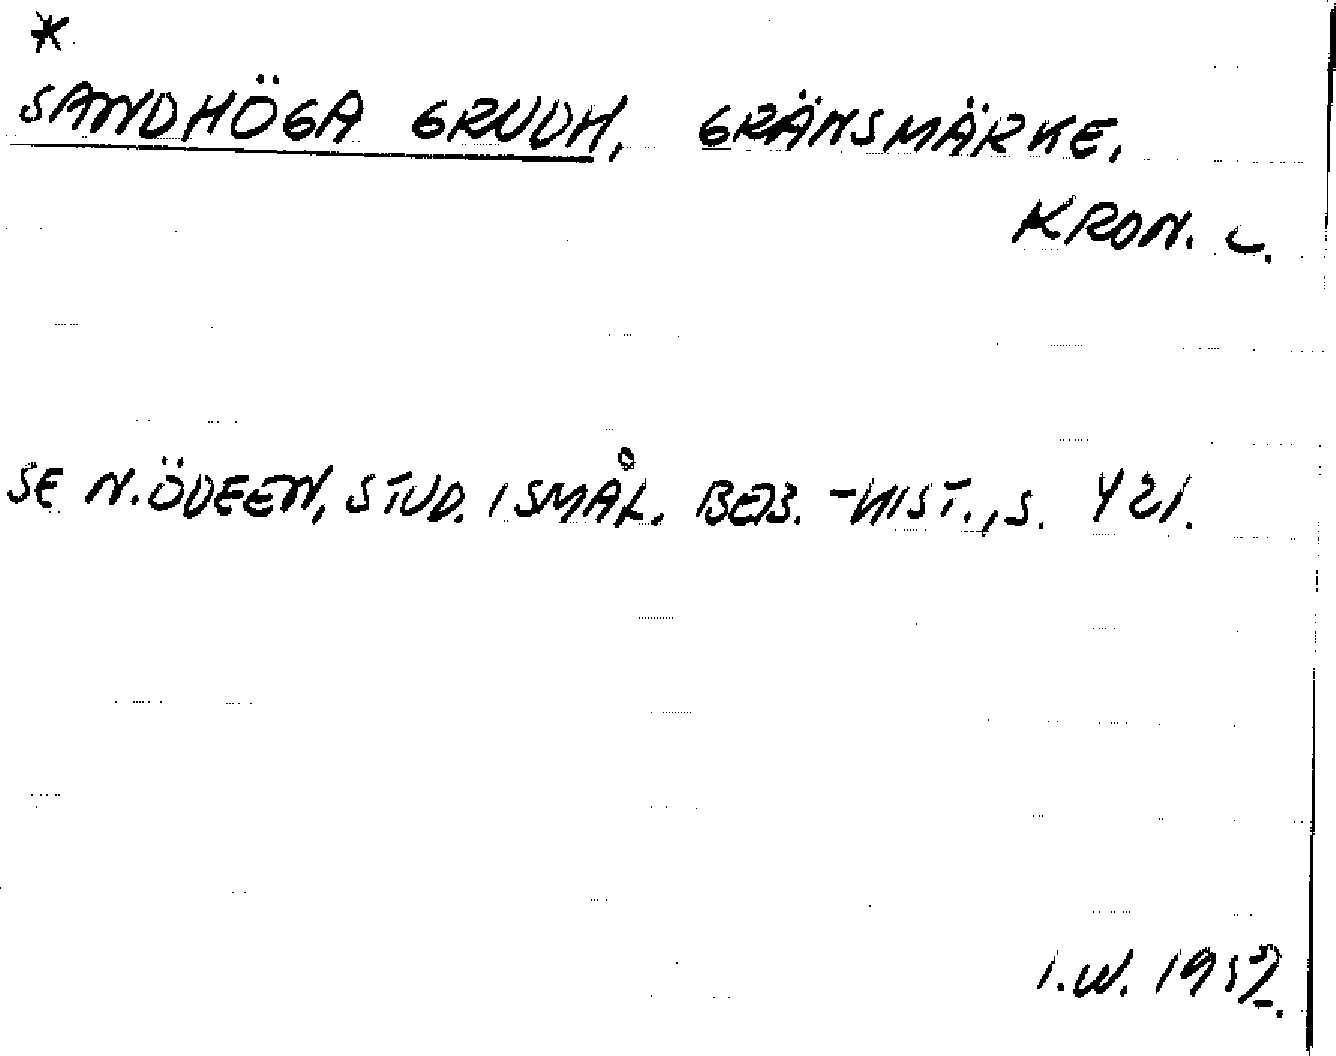 *
SANDHÖGA GRUDH, GRÄNSMÄRKE,
KRON. L.
SE N. ÖDEEN, STUD. I SMÅL. BEB.-HIST., S. 421.
I.W. 1952.